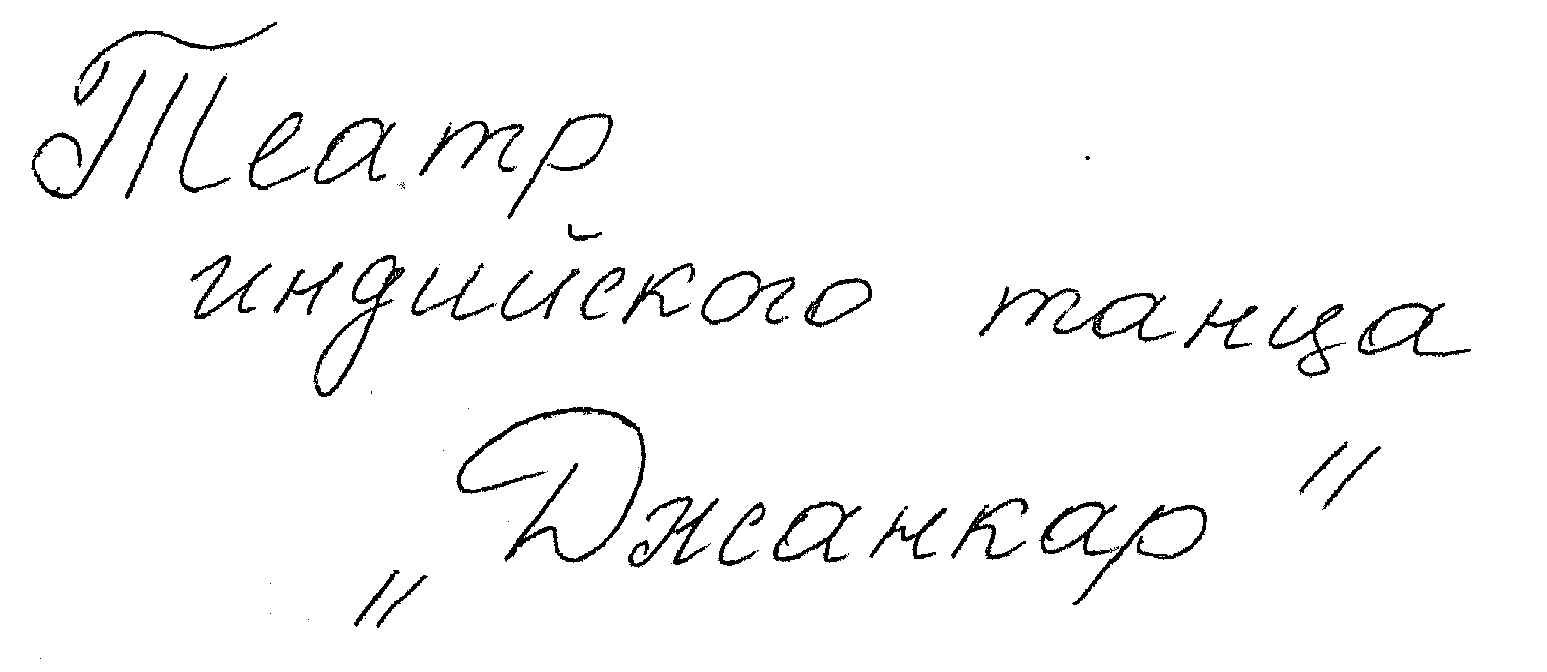 Театр
индийского танца
„Джанкар"